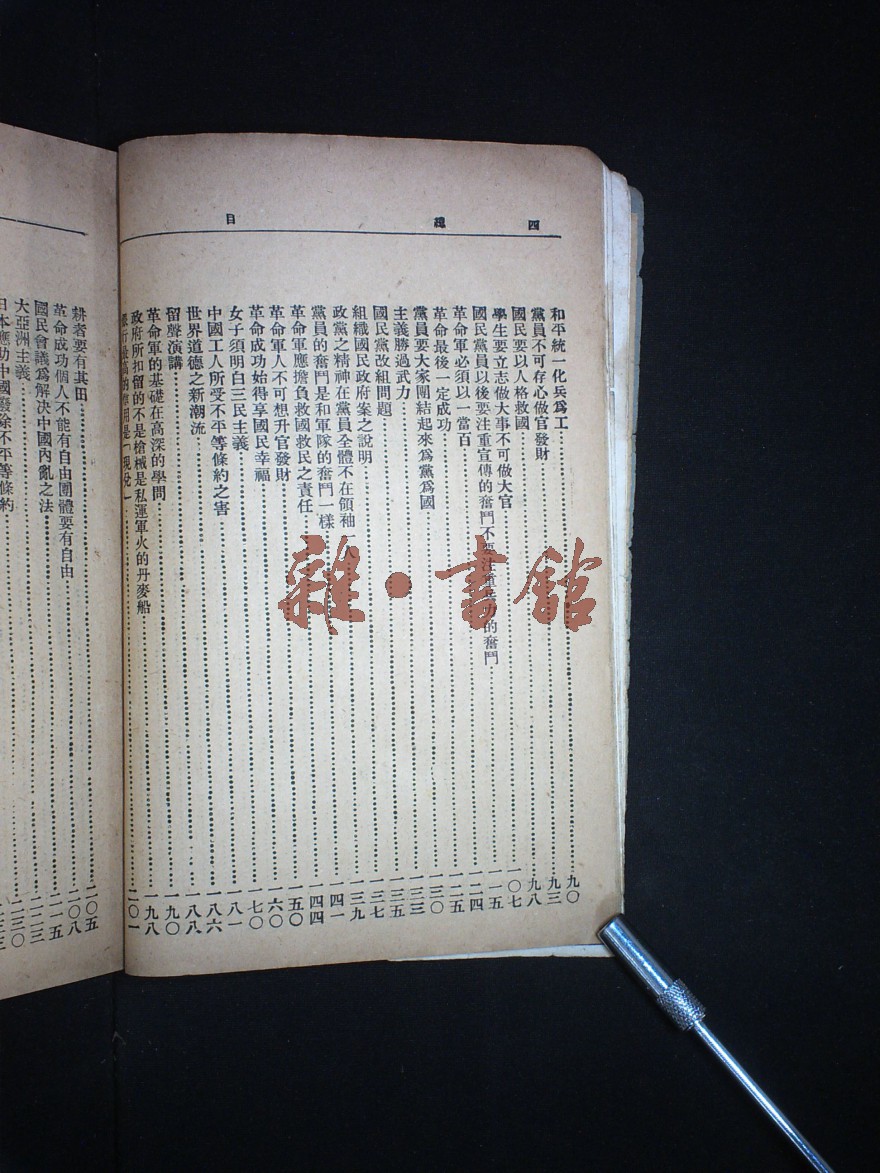 四　總　目
和平統一化兵爲工……九〇
黨員不可存心做官發財……九三
國民要以人格救國……九八
學生要立志做大事不可做大官……一〇七
國民黨員以後要注重宣傳的奮鬥不要注重兵力的奮鬥……一一五
革命軍必須以一當百……一二四
革命最後一定成功……一二五
黨員要大家團結起來爲黨爲國……一三〇
主義勝過武力……一三五
國民黨改組問題……一三七
組織國民政府案之說明……一三九
政黨之精神在黨員全體不在領袖一人……一四一
黨員的奮鬥是和軍隊的奮鬥一樣……一四四
革命軍應擔負救國救民之責任……一五〇
革命軍人不可想升官發財……一六〇
革命成功始得享國民幸福……一七〇
女子須明白三民主義……一八一
中國工人所受不平等條約之害……一八六
世界道德之新潮流……一八八
留聲演講……一九〇
革命軍的基礎在高深的學問……一九八
政府所扣留的不是槍械是私運軍火的丹麥船……二〇一
耕者要有其田……二〇五
革命成功個人不能有自由團體要有自由……二〇八
國民會議爲解決中國內亂之法……二一五
大亞洲主義……二二三
日本應助中國廢除不平等條約……二三〇
雜·書館